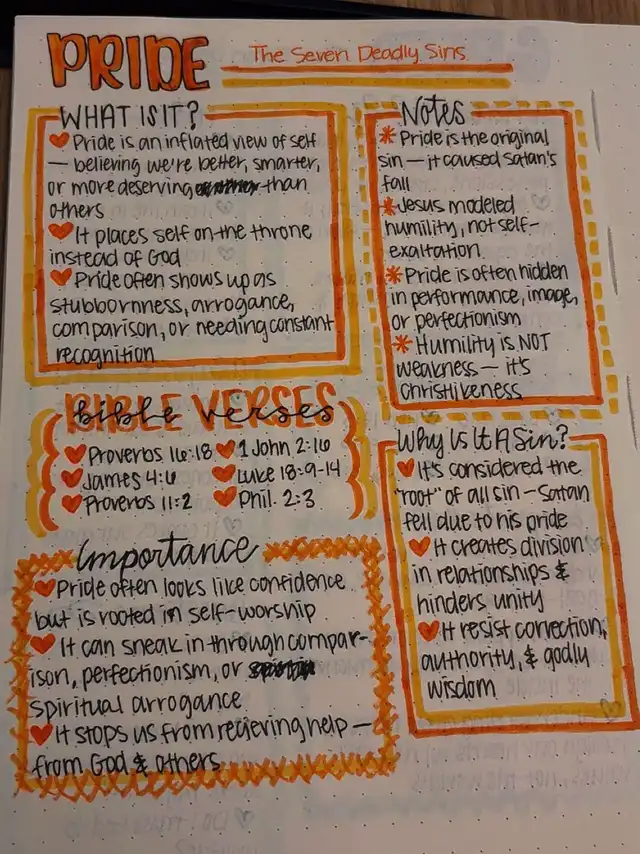 PRIDE
The Seven Deadly Sins
WHAT IS IT?
Pride is an inflated view of self
— believing we're better, smarter,
or more deserving than
others
It places self on the throne
instead of God
Pride often shows up as
stubbornness, arrogance,
comparison, or needing constant
recognition
Notes
* Pride is the original
sin — it caused Satan's
fall
* Jesus modeled
humility, not self-
exaltation.
* Pride is often hidden
in performance, image,
or perfectionism
* Humility is NOT
weakness — it's
Christlikeness
BIBLE VERSES
bible verses
Proverbs 16:18
1 John 2:16
James 4:6
Luke 18:9-14
Proverbs 11:2
Phil. 2:3
Why Is It A Sin?
It's considered the
"root" of all sin — Satan
fell due to his pride
It creates division
in relationships &
hinders unity
It resist correction,
authority, & godly
wisdom
Importance
Pride often looks like confidence
but is rooted in self-worship
It can sneak in through compar-
ison, perfectionism, or
spiritual arrogance
It stops us from recieving help —
from God & others